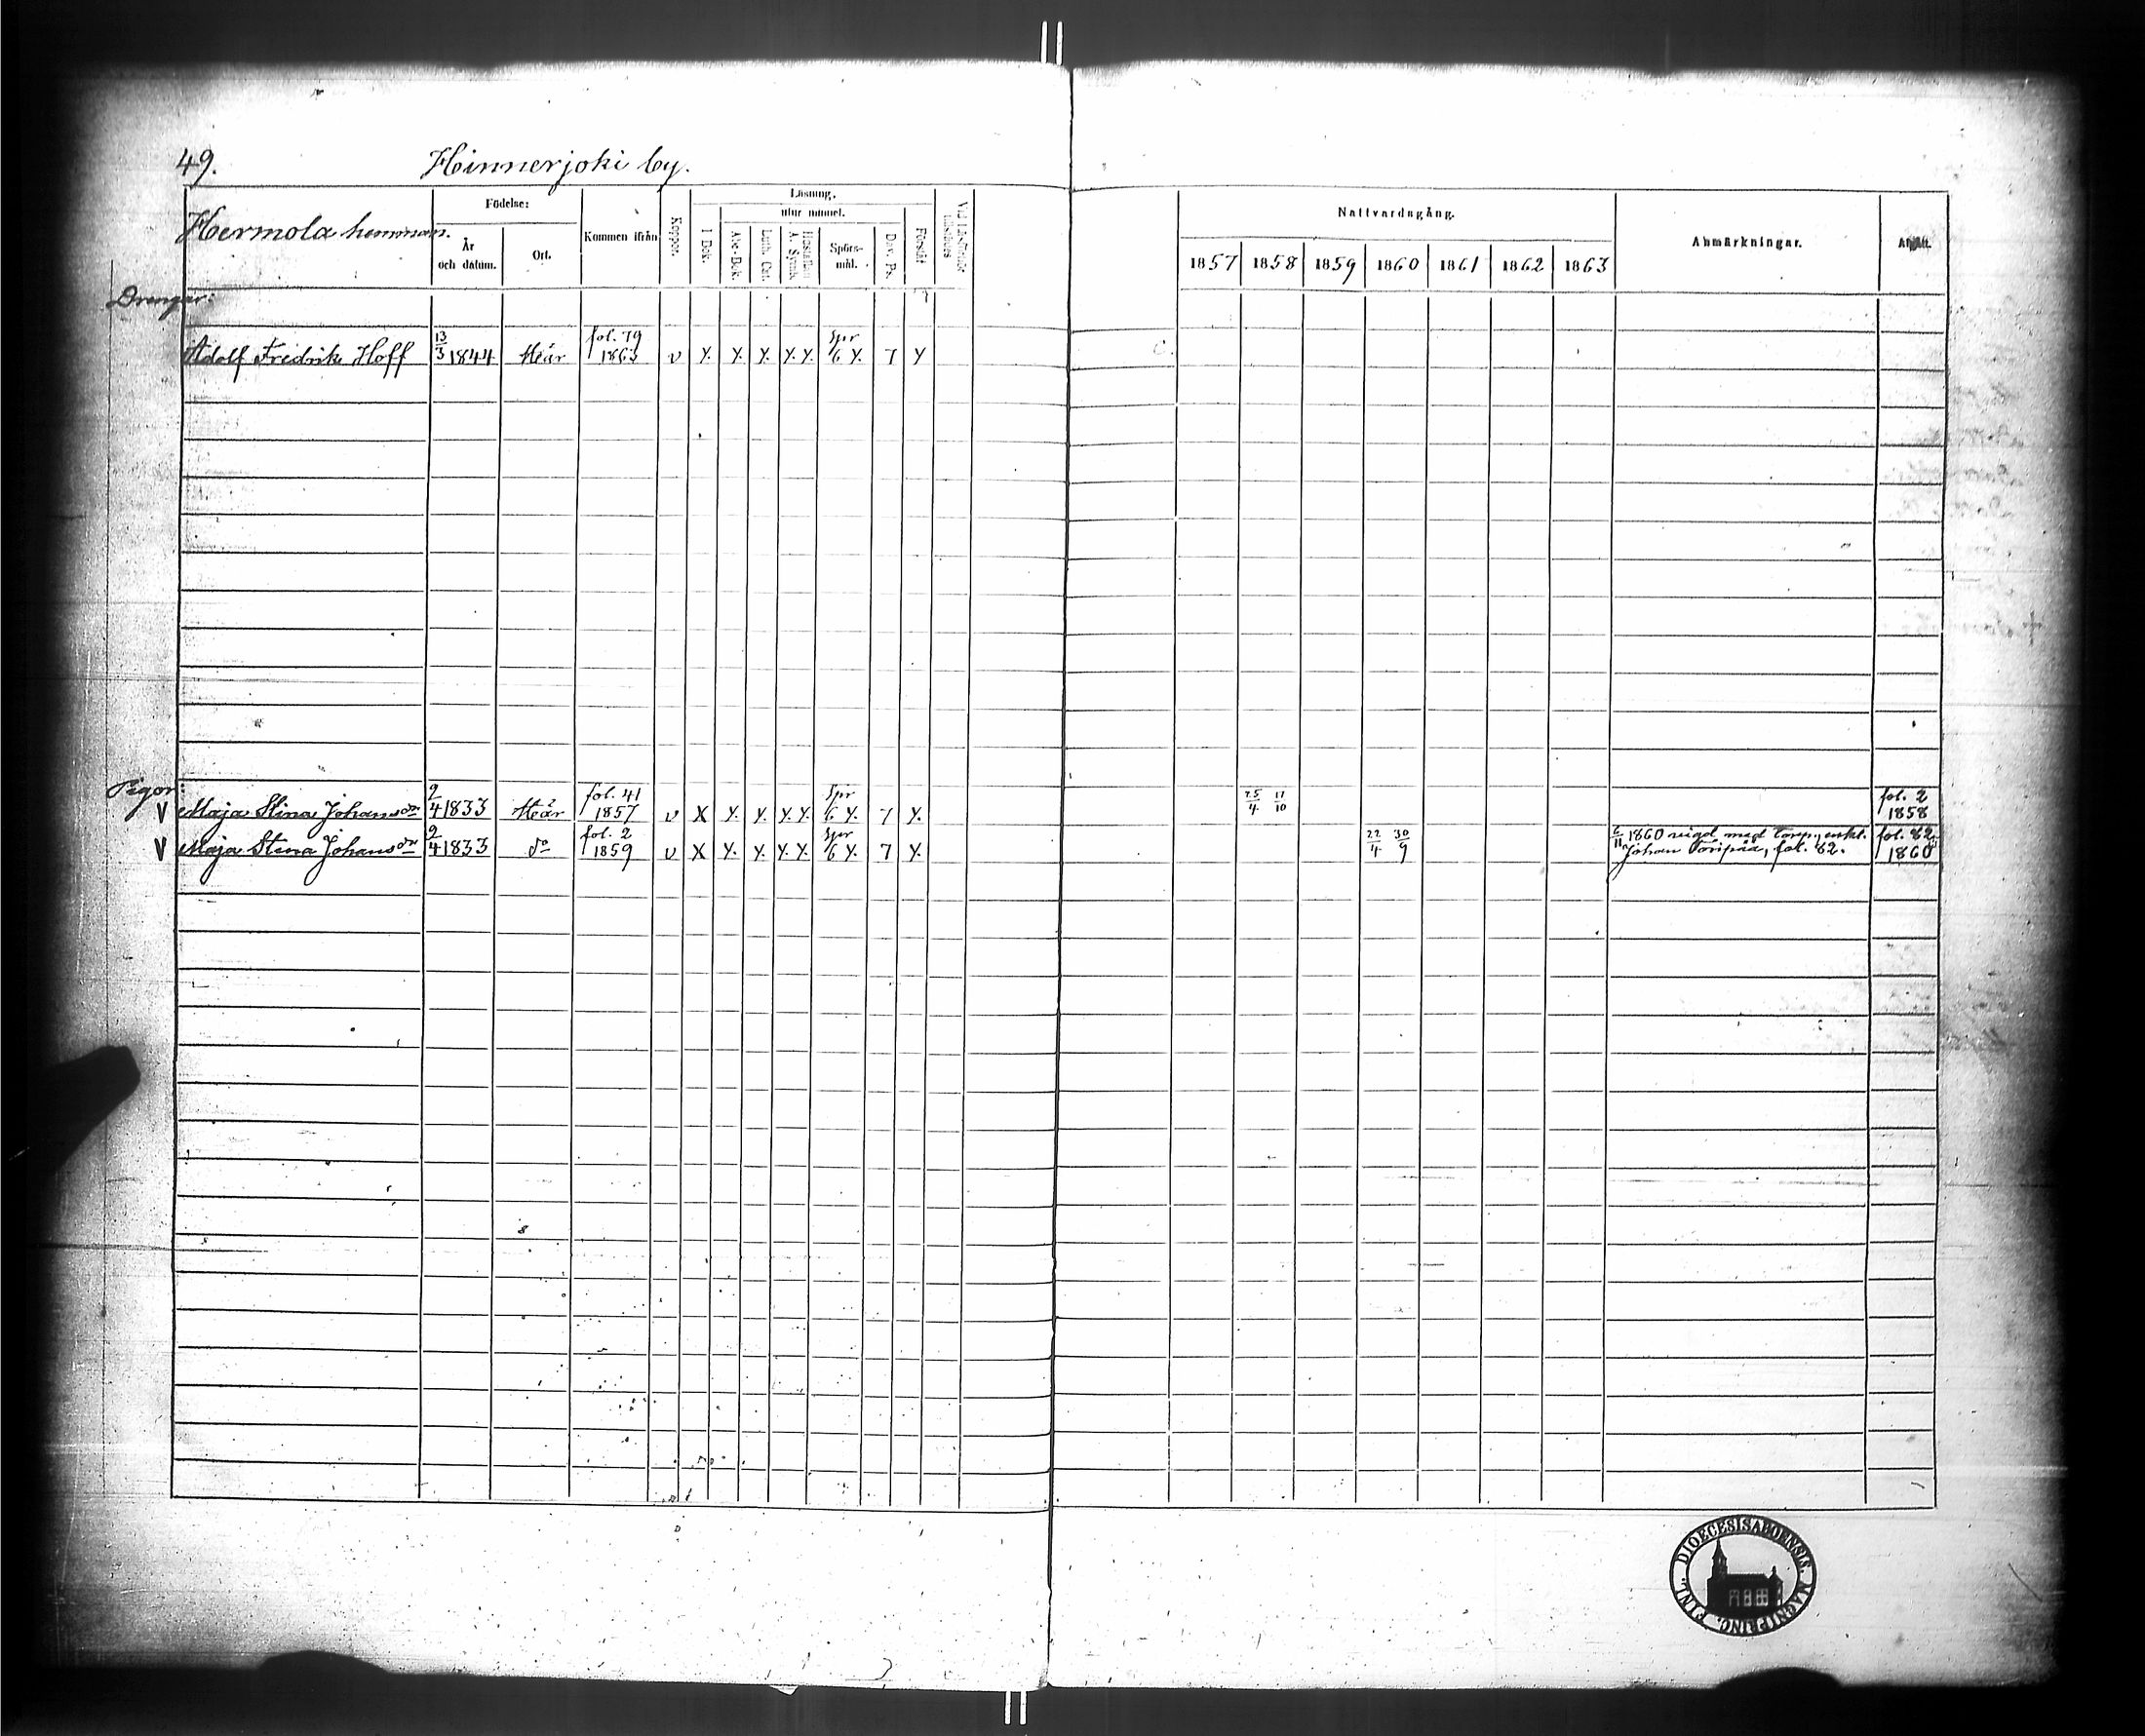 49. Hinnerjoki by.
Hermola hemman.
Födelse:
År och datum.
Ort.
Kommen ifrån
Koppor.
Läsning.
utur minnet.
I Bok.
Abc-Bok.
Luth. Cat.
Hustaflan A. Symb.
Spörs-mål.
Dav. Ps.
Förstår
Nattvardsgång.
1857 1858 1859 1860 1861 1862 1863
Anmärkningar.
Afgått.
Drengar:
Adolf Fredrik Hoff 13/3 1844 Här fol. 79 1863 v y. y. y. y. y. spr 6 y. 7 y
Pigor:
V Maja Stina Johansdr 2/4 1833 Här fol. 41 1857 v X y. y. y. y. spr 6 y. 7 y. 25/4 17/10 fol. 2 1858
V Maja Stina Johansdr 2/4 1833 do fol. 2 1859 v X y. y. y. y. spr 6 y. 7 y. 22/4 30/9 1860 vigd med torp. enkl. Johan fol. 82. fol. 82 1860
DIOECESIS ABOENSIS. MAGNI PRINC. FINL.